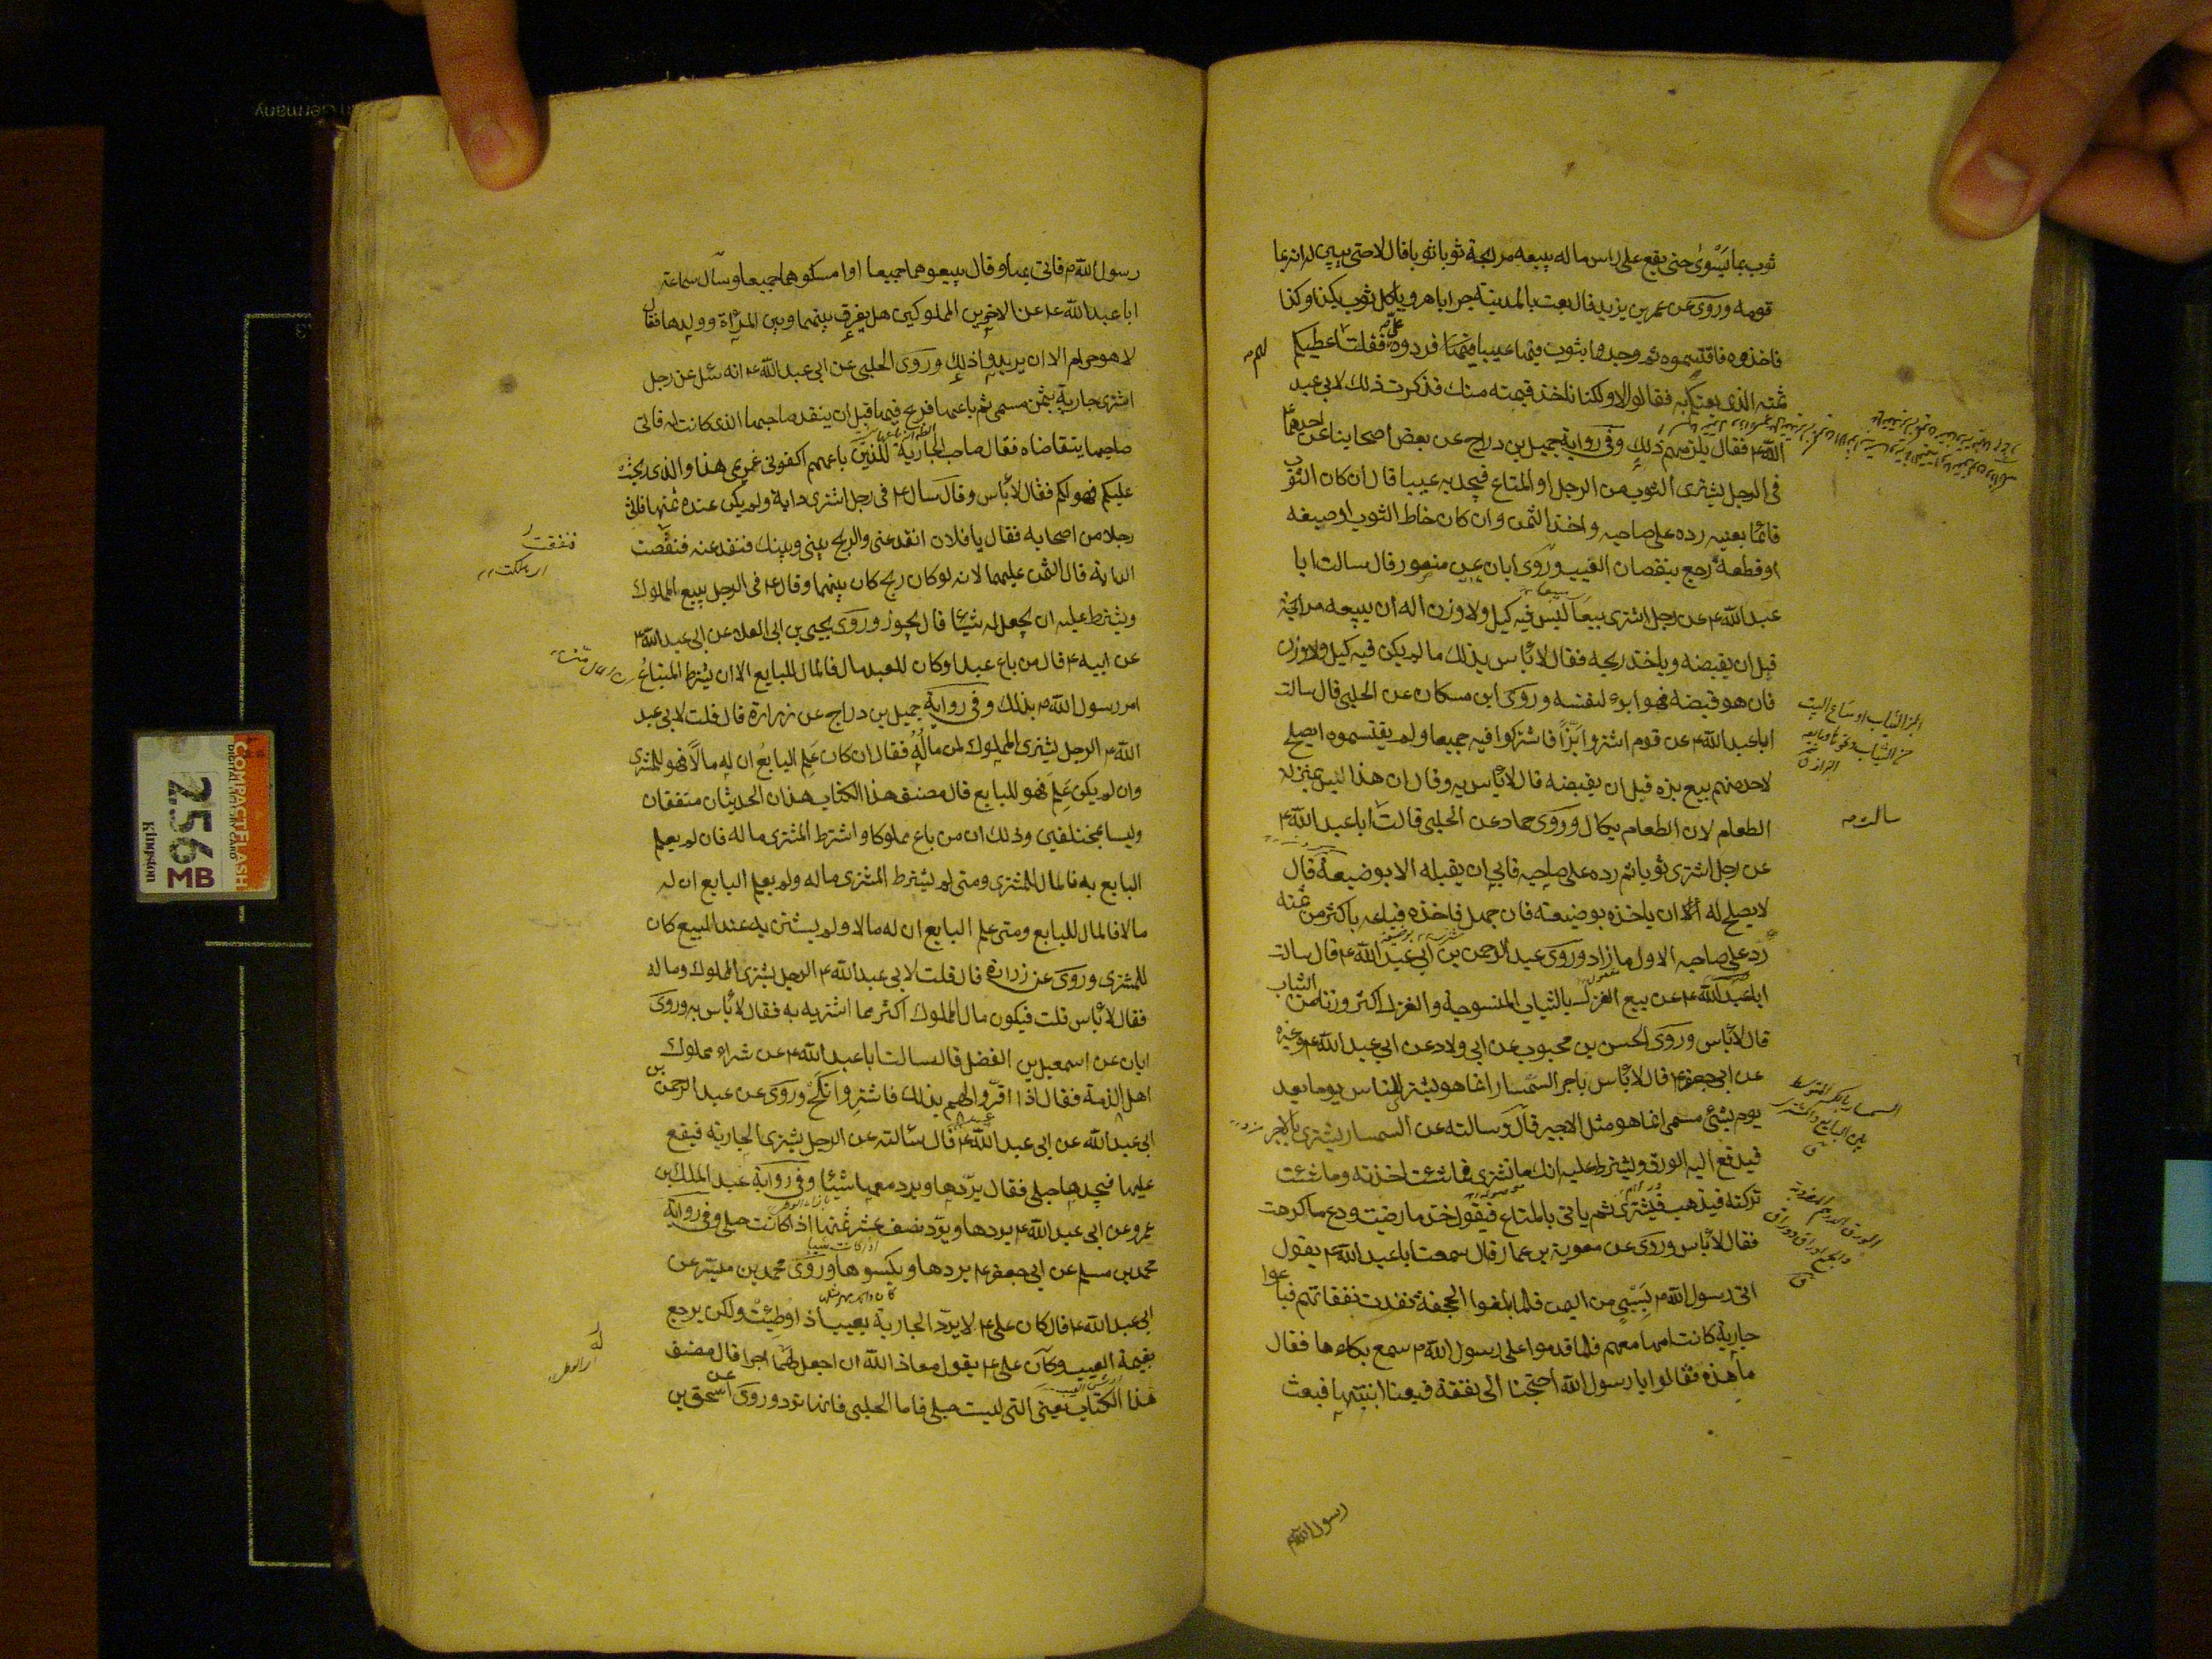 ثوب بما يسوى حتى يقع على راس ماله يبيعه مرابحة ثوبا ثوبا قال لا حتى يبين له انه انما
قومه وروى عن عمر بن يزيد قال بعت بالمدينة جرابا هرويا كل ثوب بكذا وكذا
فاخذوه فاقتسموه ثم وجدوا بثوب فيها عيبا فردوه علي فقلت اعطيكم
ثمنه الذى بعتكم به فقالوا لا ولكنا ناخذ قيمته منك فذكرت ذلك لابى عبد
الله ع فقال يلزمهم ذلك وفى رواية جميل بن دراج عن بعض اصحابنا عن احدهما ع
فى الرجل يشترى الثوب من الرجل او المتاع فيجد به عيبا قال ان كان الثوب
قائما بعينه رده على صاحبه واخذ الثمن وان كان خاط الثوب او صبغه
او قطعه رجع بنقصان العيب وروى ابان عن منصور قال سالت ابا
عبد الله ع عن رجل اشترى بيعا ليس فيه كيل ولا وزن اله ان يبيعه مرابحة
قبل ان يقبضه وياخذ ربحه فقال لا باس بذلك ما لم يكن فيه كيل ولا وزن
فان هو قبضه فهو ابرء لنفسه وروى ابن مسكان عن الحلبى قال سالت
ابا عبد الله ع عن قوم اشتروا بزا فاشتركوا فيه جميعا ولم يقتسموه ايصلح
لاحد منهم بيع بزه قبل ان يقبضه قال لا باس به وقال ان هذا ليس بمنزلة
الطعام لان الطعام يكال وروى حماد عن الحلبى قال سالت ابا عبد الله ع
عن رجل اشترى ثوبا ثم رده على صاحبه فابى ان يقبله الا بوضيعة قال
لا يصلح له ان ياخذه بوضيعة فان جهل فاخذه فباعه باكثر من ثمنه
رد على صاحبه الاول ما زاد وروى عبد الرحمن بن ابى عبد الله ع قال سالت
ابا عبد الله ع عن بيع الغزل بالثياب المنسوجة والغزل اكثر وزنا من الثياب
قال لا باس وروى الحسن بن محبوب عن ابى ولاد عن ابى عبد الله ع وغيره
عن ابى جعفر ع قال لا باس باجر السمسار انما هو يشترى للناس يوما بعد
يوم بشئ مسمى انما هو مثل الاجير قال وسالته عن السمسار يشترى بالاجر
فيدفع اليه الورق ويشترط عليه انك ما تشترى فما شئت اخذته وما شئت
تركته فيذهب فيشترى ثم ياتى بالمتاع فيقول خذ ما رضيت ودع ما كرهت
فقال لا باس وروى عن معوية بن عمار قال سمعت ابا عبد الله ع يقول
اتى رسول الله ص بسبي من اليمن فلما بلغوا الجحفة نفدت نفقاتهم فباعوا
جارية كانت امها معهم فلما قدموا على رسول الله ص سمع بكاءها فقال
ما هذه فقالوا يا رسول الله احتجنا الى نفقة فبعنا ابنتها فبعث
رسول الله ص
لهم
سالت
رسول الله ص فاتى بها وقال بيعوهما جميعا او امسكوهما جميعا وسال سماعة
ابا عبد الله ع عن الاخوين المملوكين هل يفرق بينهما وبين المرأة وولدها فقال
لا هو حرام الا ان يريدوا ذلك وروى الحلبى عن ابى عبد الله ع انه سئل عن رجل
اشترى جارية بثمن مسمى ثم باعها فربح فيها قبل ان ينقد صاحبها الذى كانت له فاتى
صاحبها يتقاضاه فقال صاحب الجارية للذين باعهم اكفونى غريمى هذا والذى ربحت
عليكم فهو لكم فقال لا باس وقال سال ع فى رجل اشترى دابة ولم يكن عنده ثمنها فاتى
رجلا من اصحابه فقال يا فلان انقد عنى والربح بينى وبينك فنقد عنه فنقصت
الدابة قال الثمن عليهما لانه لو كان ربح كان بينهما وقال ع فى الرجل يبيع المملوك
ويشترط عليه ان يجعل له شيئا قال يجوز وروى يحيى بن ابى العلاء عن ابى عبد الله ع
عن ابيه ع قال من باع عبدا وكان للعبد مال فالمال للبايع الا ان يشترط المبتاع
امر رسول الله ص بذلك وفى رواية جميل بن دراج عن زرارة قال قلت لابى عبد
الله ع الرجل يشترى المملوك لمن ماله فقال ان كان علم البايع ان له مالا فهو للمشترى
وان لم يكن علم فهو للبايع قال مصنف هذا الكتاب هذان الحديثان متفقان
وليسا بمختلفين وذلك ان من باع مملوكا واشترط المشترى ماله فان لم يعلم
البايع به فالمال للمشترى ومتى لم يشترط المشترى ماله ولم يعلم البايع ان له
مالا فالمال للبايع ومتى علم البايع ان له مالا ولم يستثن به عند البيع كان
للمشترى وروى عن زرارة قال قلت لابى عبد الله ع الرجل يشترى المملوك وماله
فقال لا باس قلت فيكون مال المملوك اكثر مما اشتريه به فقال لا باس به وروى
ابان عن اسمعيل بن الفضل قال سالت ابا عبد الله ع عن شراء مملوك
اهل الذمة فقال اذا اقروا لهم بذلك فاشتر وانكح وروى عن عبد الرحمن بن
ابى عبد الله عن ابى عبد الله ع قال سالته عن الرجل يشترى الجارية فيقع
عليها فيجدها حبلى فقال يردها ويرد معها شيئا وفى رواية عبد الملك بن
عمرو عن ابى عبد الله ع يردها ويرد نصف عشر ثمنها اذا كانت حبلى وفى رواية
محمد بن مسلم عن ابى جعفر ع يردها ويكسوها وروى محمد بن ميسر عن
ابى عبد الله ع قال كان على ع لا يرد الجارية بعيب اذا وطئت ولكن يرجع
بقيمة العيب وكان على ع يقول معاذ الله ان اجعل لها اجرا قال مصنف
هذا الكتاب يعنى التى ليست حبلى فاما الحبلى فانها ترد وروى عن اسحق بن
فنفقت
COMPACTFLASH
256
MB
Kingston
Germany